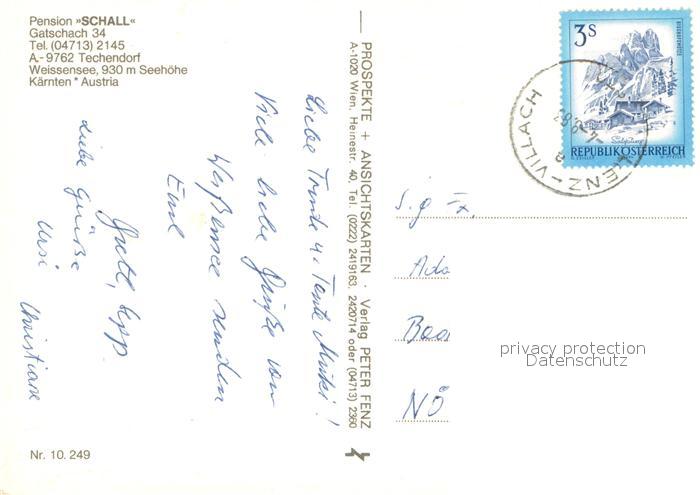 Pension »SCHALL«
Gatschach 34
Tel. (04713) 2145
A.-9762 Techendorf
Weissensee, 930 m Seehöhe
Kärnten * Austria
Liebe Trude u. Tante Mutzi!
Viele liebe Grüße vom
Weißensee senden
Euch
Gretl, Sepp
liebe Grüße
Ursi
Christiane
Nr. 10. 249
PROSPEKTE + ANSICHTSKARTEN · Verlag PETER FENZ
A-1020 Wien, Heinestr. 40, Tel. (0222) 2419163, 2420714 oder (04713) 2360
3S
REPUBLIK ÖSTERREICH
LIENZ-VILLACH
S. g. Fr.
Ada
Baa
NÖ
privacy protection
Datenschutz